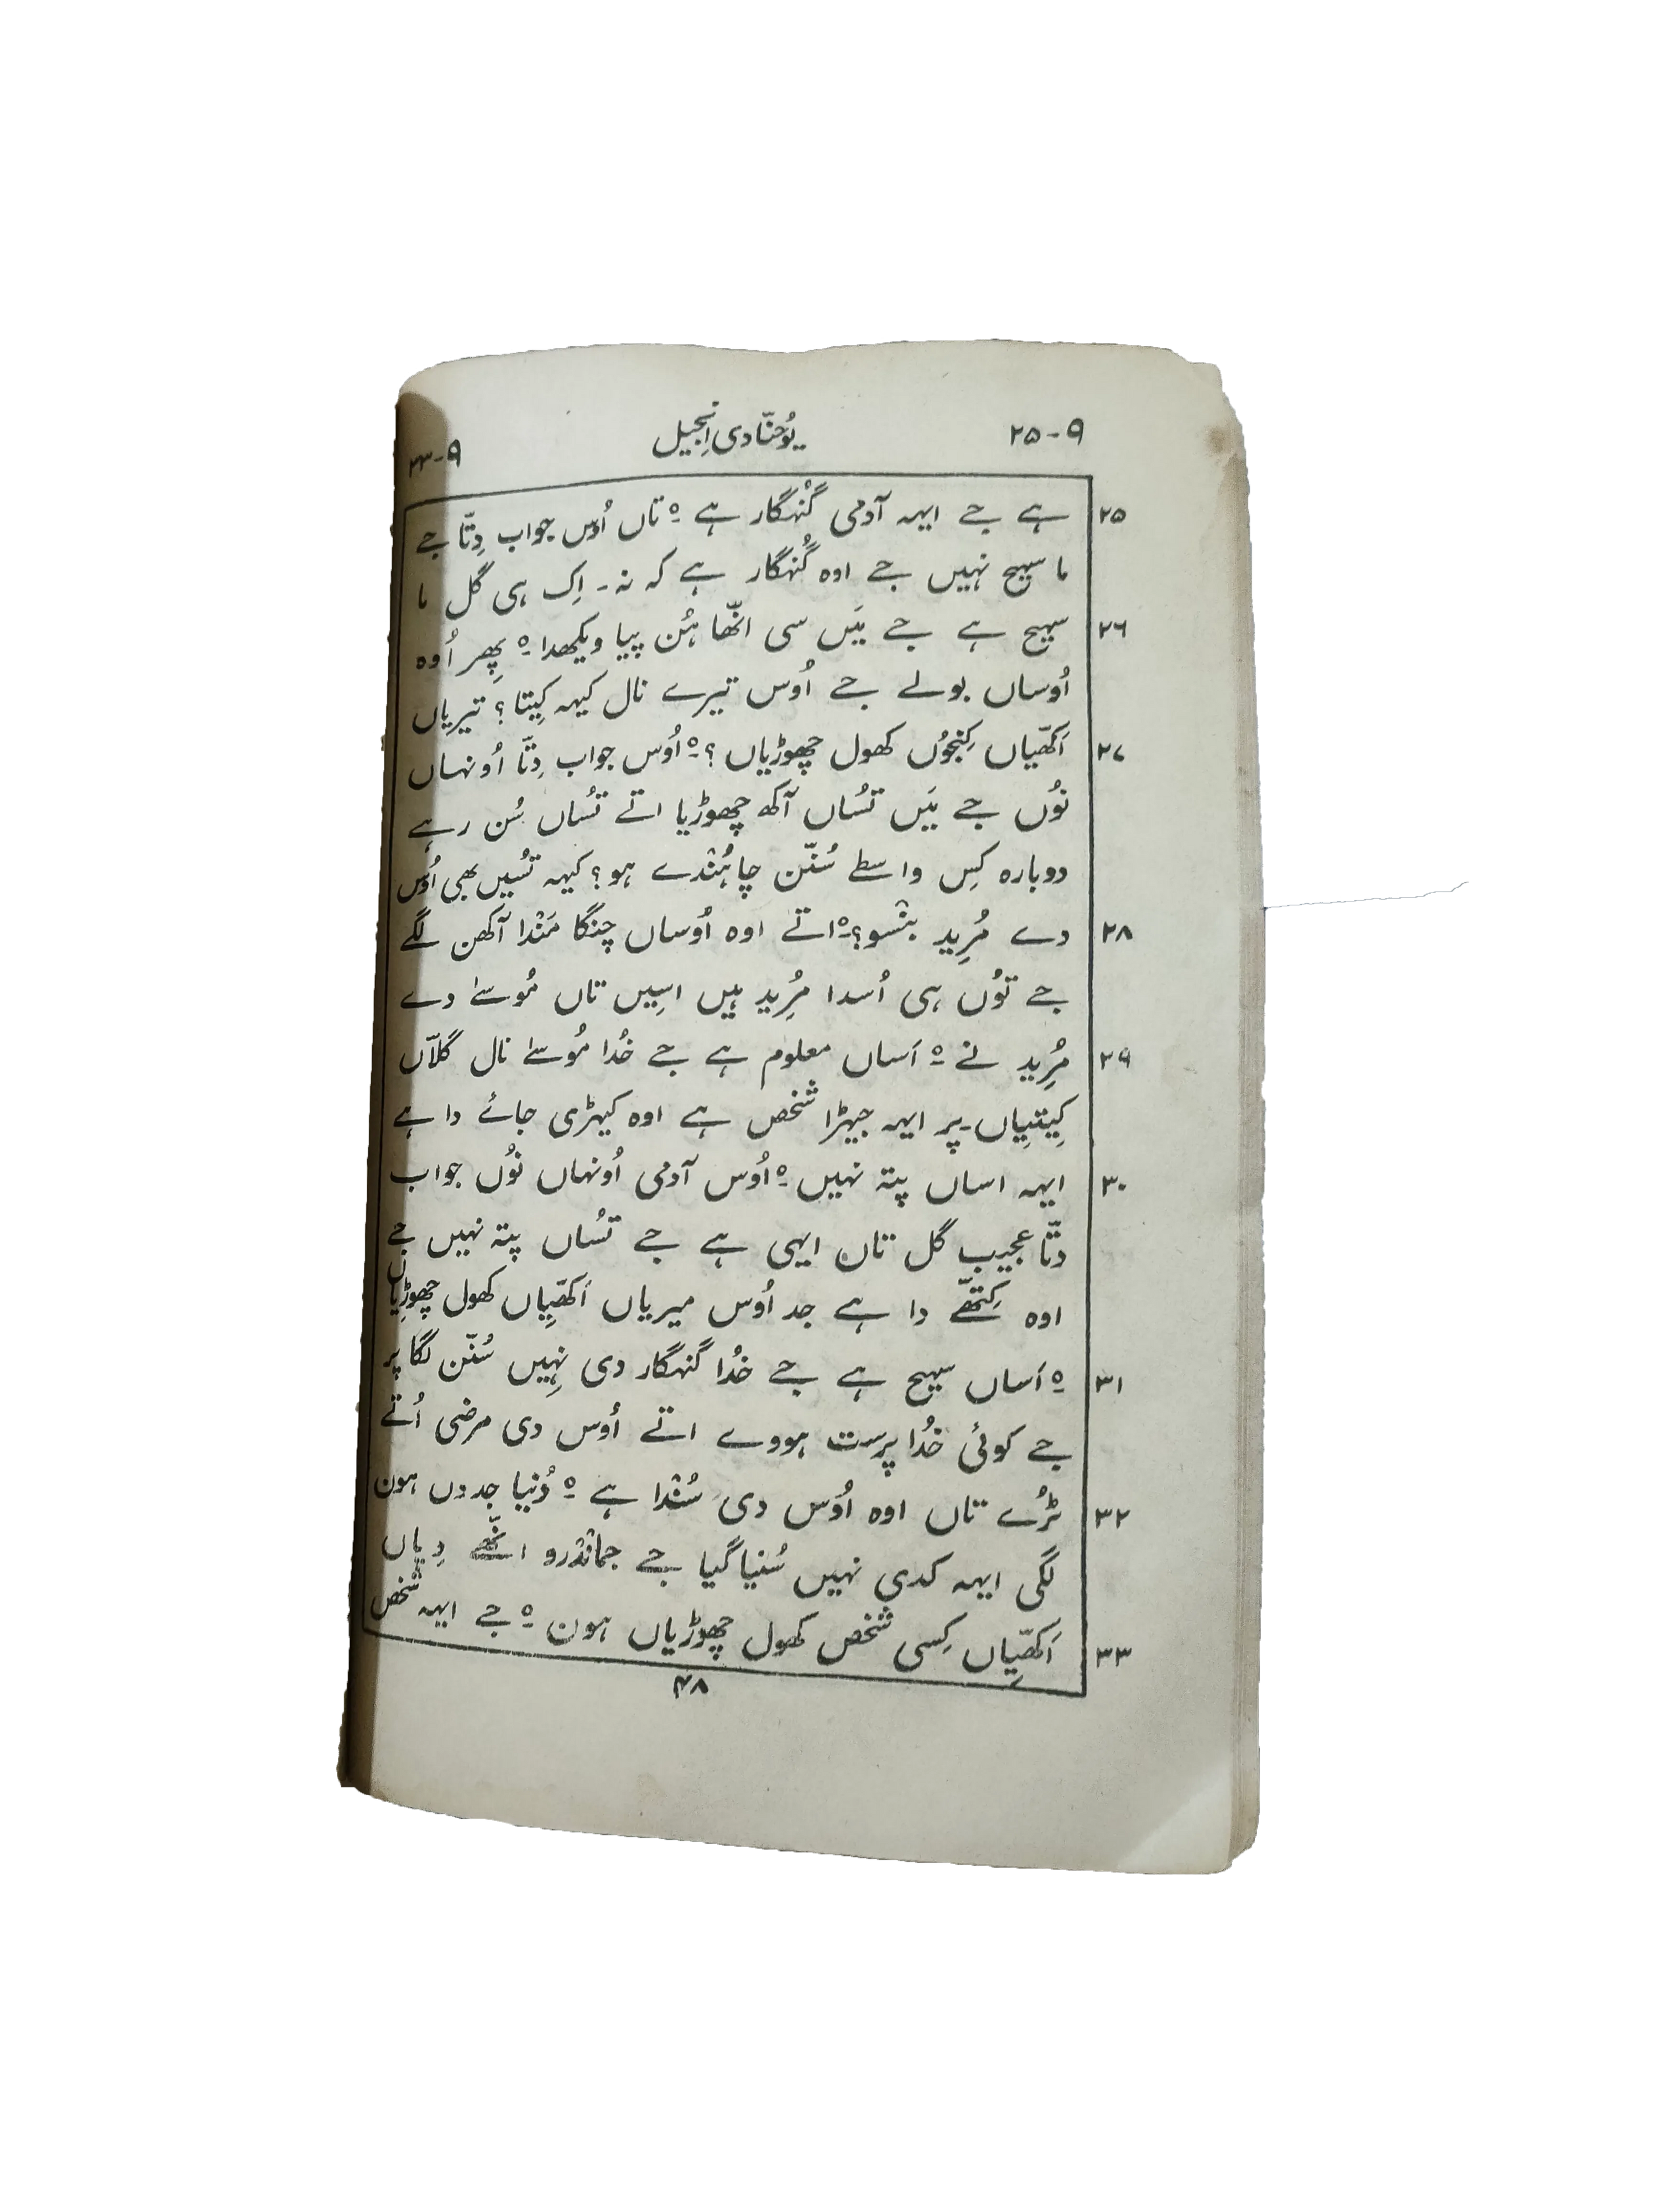 ۹-۲۵ یُوحنّا دی اِنجیل ۹-۳۳
۲۵ ہے جے ایہہ آدمی گُنہگار ہے ہ تاں اُوس جواب دِتّا جے
ما سہیح نہیں جے اوہ گُنہگار ہے کہ نہ۔ اِک ہی گل ما
۲۶ سہیح ہے جے مَیں سی انّھا ہُن پیا ویکھدا ہ پِھر اُوہ
اُوساں بولے جے اُوس تیرے نال کیہہ کِیتا؟ تیریاں
۲۷ اَکھّیاں کِنجوُں کھول چھوڑیاں؟ ہ اُوس جواب دِتّا اُونہاں
نوُں جے مَیں تسُاں آکھ چھوڑیا اتے تسُاں سُن رہے
دوبارہ کِس واسطے سُنّن چاہُندے ہو؟ کیہہ تسُیں بھی اُوس
۲۸ دے مُرِید بنْسو؟ ہ اتے اوہ اُوساں چنگا مَندا آکھن لگے
جے توُں ہی اُسدا مُرِید ہیں اسِیں تاں مُوسےٰ دے
۲۹ مُرِید نے ہ اَساں معلوم ہے جے خُدا مُوسےٰ نال گلاّں
کِیتیِاں۔ پر ایہہ جیہڑا شخص ہے اوہ کیہڑی جائے دا ہے
۳۰ ایہہ اساں پتہ نہیں ہ اُوس آدمی اُونہاں نوُں جواب
دتّا عجیب گل تاں ایہی ہے جے تسُاں پتہ نہیں جے
اوہ کِتھّے دا ہے جد اُوس میریاں اَکھّیِاں کھول چھوڑِیاں
۳۱ ہ اَساں سہیح ہے جے خُدا گنہگار دی نہِیں سُنّن لگا پر
جے کوئی خُدا پرست ہووے اتے اُوس دی مرضی اُتے
۳۲ ٹرُے تاں اوہ اُوس دی سُندا ہے ہ دُنیا جدوں ہون
لگی ایہہ کدی نہیں سُنیا گیا جے جماندرو انّھے دِیاں
۳۳ اَکھّیِاں کِسی شخص کھول چھوڑیاں ہون ہ جے ایہہ شخص
۴۸